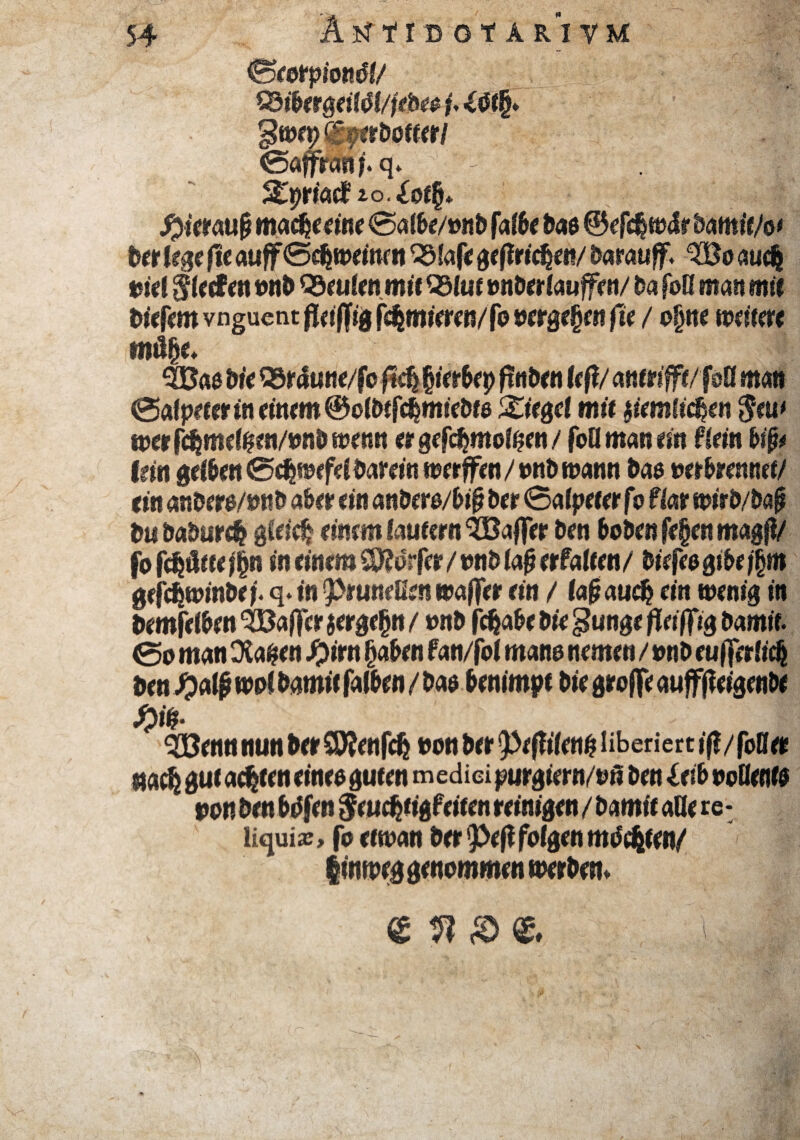 54 ANTIDOTARIVM
Scorpionöl/
Bibergeilöl/jedes j. Löth.
Zwey Eyerdotter/
Saffran j. q.
Tyriack 20. Loth.
Hierauß mache eine Salbe/vnd salbe das Geschwär damit/o⸗
der lege sie auff Schweinen Blase gestrichen/ darauff. Wo auch
viel Flecken vnd Beulen mit Blut vnderlauffen/ da soll man mit
diesem vnguent fleissig schmieren/so vergehen sie / ohne weitere
mühe.
Was die Bräune/so sich hierbey finden lest/ antrifft/ soll man
Salpeter in einem Goldtschmiedts Tiegel mit ziemlichen Feu⸗
wer schmeltzen/vnd wenn er geschmoltzen / soll man ein klein biß⸗
lein gelben Schwefel darein werffen / vnd wann das verbrennet/
ein anders/vnd aber ein anders/biß der Salpeter so klar wird/daß
du dadurch gleich einem lautern Wasser den boden sehen magst/
so schütte jhn in einem Mörser / vnd laß erkalten/ dieses gibe jhm
geschwinde j. q. in Prunellen wasser ein / laß auch ein wenig in
demselben Wasser zergehn / vnd schabe die Zunge fleissig damit.
So man Katzen Hirn haben kan/sol mans nemen / vnd eusserlich
den Halß wol damit salben / das benimpt die grosse auffsteigende
Hitz.
Wenn nun der Mensch von der Pestilentz liberiert ist / soll er
nach gut achten eines guten medici purgiern/vñ den Leib vollents
von den bösen Feuchtigkeiten reinigen / damit alle re-
liquiæ, so etwan der Pest folgen möchten/
hinweg genommen werden.
ENDE.